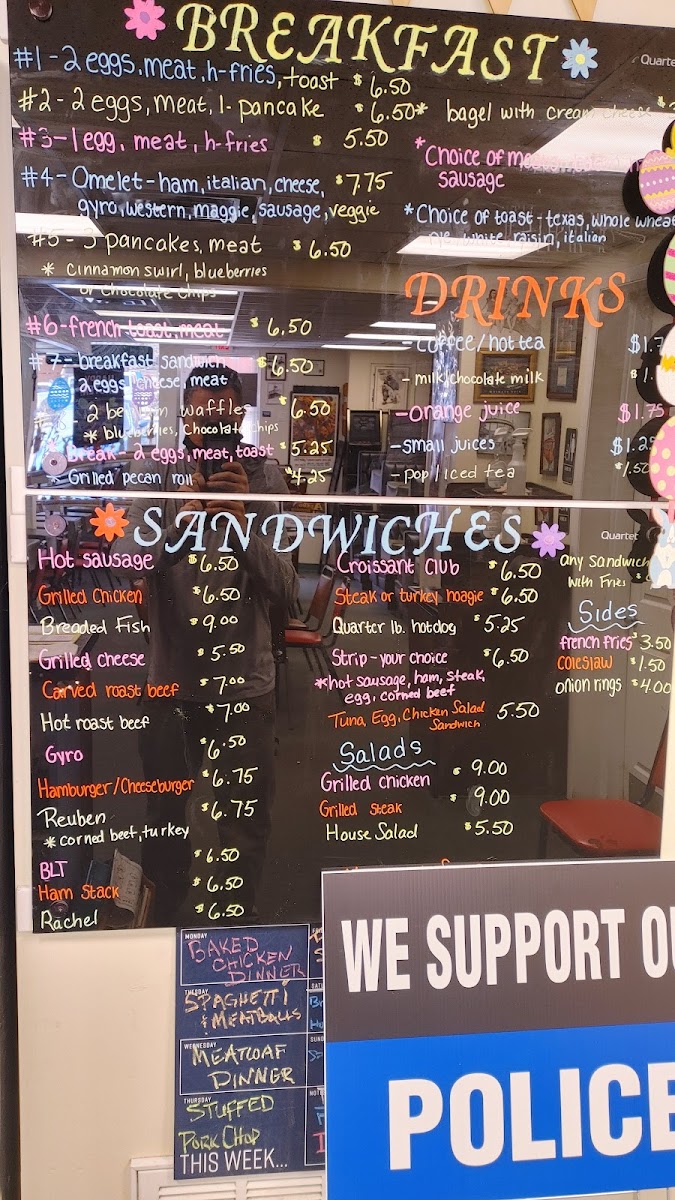 BREAKFAST
Quarte
#1 - 2 eggs, meat, h-fries, toast $6.50
#2 - 2 eggs, meat, 1- pancake $6.50
* bagel with cream cheese $
#3 - 1 egg, meat, h-fries $5.50
*Choice of
sausage
#4 - Omelet - ham, italian, cheese, $7.75
gyro, western, maggie, sausage, veggie
*Choice of toast - texas, whole wheat
rye, white, raisin, italian
#5 - 3 pancakes, meat $6.50
* cinnamon swirl, blueberries
or chocolate chips
#6 - french toast, meat $6.50
#7 - breakfast sandwich $6.50
2 eggs, cheese, meat
2 belgium waffles 6.50
* blueberries, Chocolate chips
Break - 2 eggs, meat, toast $5.25
* Grilled pecan roll $4.25
DRINKS
- coffee/hot tea $1.7
- milk/chocolate milk $1.
- orange juice $1.75
- small juices $1.25
- pop/iced tea $1.50
SANDWICHES
Quartet
Hot sausage $6.50
Grilled Chicken $6.50
Breaded Fish $9.00
Grilled cheese $5.50
Carved roast beef $7.00
Hot roast beef $7.00
Gyro $6.50
Hamburger/Cheeseburger $6.75
Reuben $6.75
* corned beef, turkey
BLT $6.50
Ham Stack $6.50
Rachel $6.50
Croissant Club $6.50
Steak or turkey hoagie $6.50
Quarter lb. hotdog $5.25
Strip - your choice $6.50
*hot sausage, ham, steak,
egg, corned beef
Tuna, Egg, Chicken Salad 5.50
Sandwich
Salads
Grilled chicken $9.00
Grilled Steak $9.00
House Salad $5.50
any sandwich
with Fries $
Sides
french fries $3.50
coleslaw $1.50
onion rings $4.00
MONDAY
BAKED
CHICKEN
DINNER
TUESDAY
SPAGHETTI
& MEATBALLS
WEDNESDAY
MEATLOAF
DINNER
THURSDAY
STUFFED
PORK CHOP
THIS WEEK...
WE SUPPORT OU
POLICE